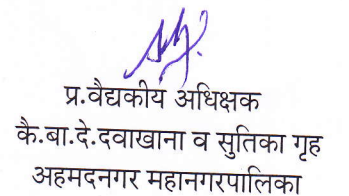 प्र.वैद्यकीय अधिक्षक
कै.बा.दे.दवाखाना व सुतिका गृह
अहमदनगर महानगरपालिका